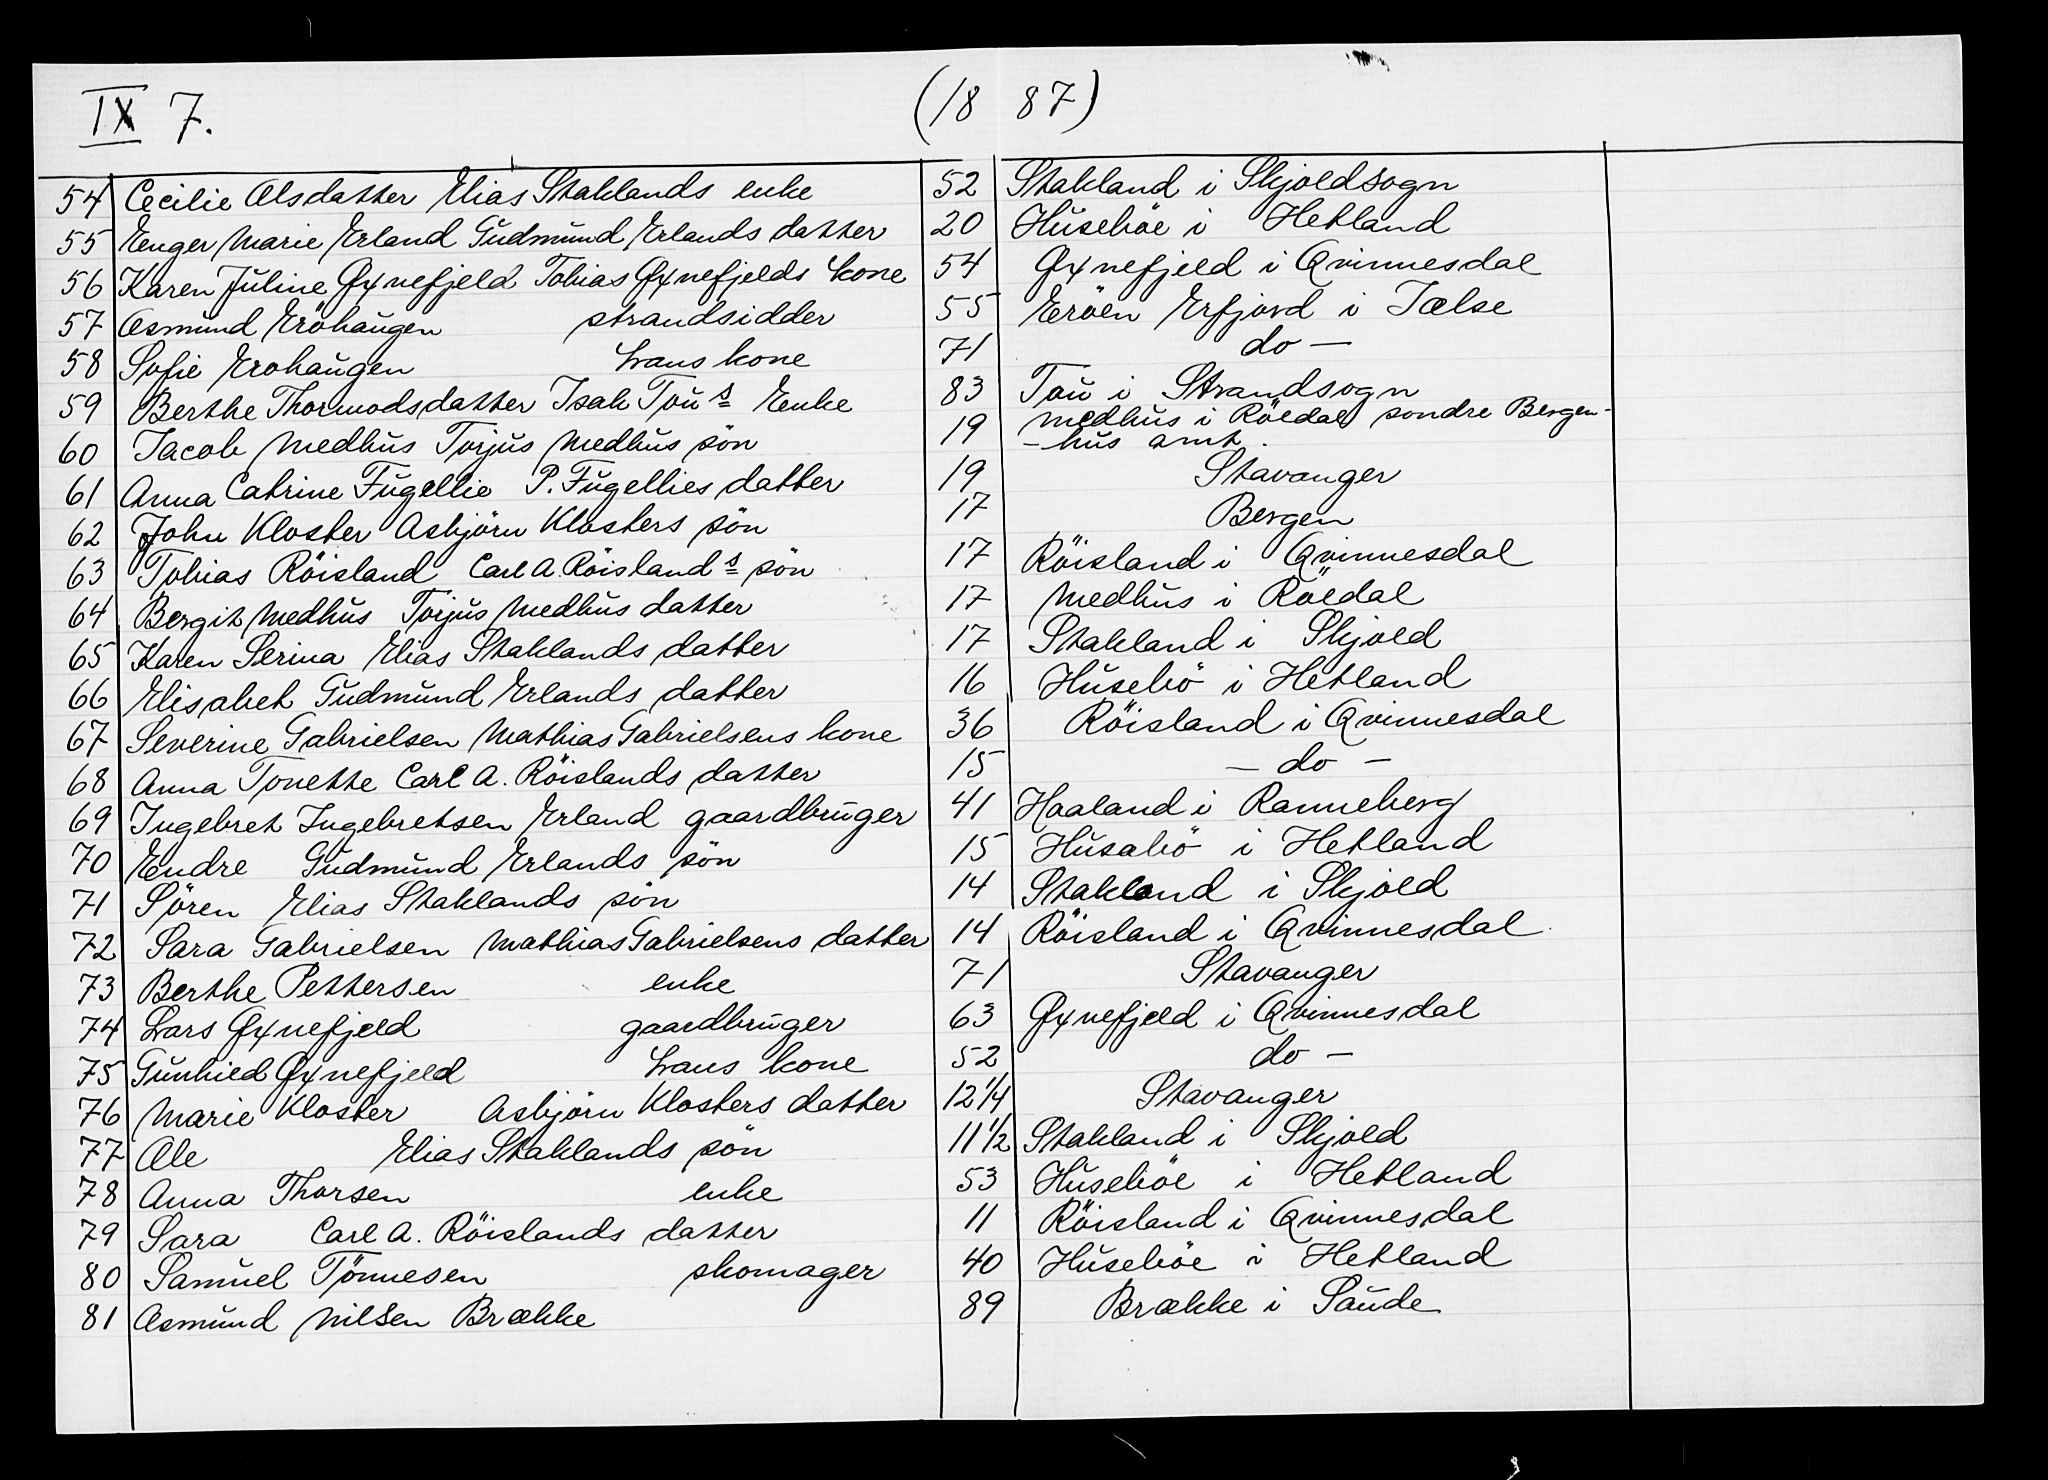 IX 7. (18 87)
54 Cecilie Olsdatter Elias Staklands enke 52 Stakland i Skjoldsogn
55 Enger Marie Erland Gudmund Erlands datter 20 Huseböe i Hetland
56 Karen Juline Øxnefjeld Tobias Øxnefjelds kone 54 Øxnefjeld i Qvinnesdal
57 Asmund Eröhaugen strandsidder 55 Eröen Erfjord i Jælse
58 Sofie Erohaugen hans kone 71 do —
59 Berthe Thormodsdatter Isak Tou s Enke 83 Tou i Strandsogn
60 Jacob Medhus Torjus Medhus sön 19 Medhus i Röldal sondre Bergen-
- hus amt.
61 Anna Catrine Fugellie P. Fugellies datter 19 Stavanger
62 John Kloster Asbjörn Klosters sön 17 Bergen
63 Tobias Röisland Carl A. Röisland s sön 17 Röisland i Qvinnesdal
64 Bergit Medhus Torjus Medhus datter 17 Medhus i Röldal
65 Karen Serina Elias Staklands datter 17 Stakland i Skjold
66 Elisabet Gudmund Erlands datter 16 Husebö i Hetland
67 Severine Gabrielsen Mathias Gabrielsens kone 36 Röisland i Qvinnesdal
68 Anna Tonette Carl A. Röislands datter 15 — do —
69 Ingebret Ingebretsen Erland gaardbruger 41 Haaland i Ranneberg
70 Endre Gudmund Erlands sön 15 Husabö i Hetland
71 Sören Elias Staklands sön 14 Stakland i Skjold
72 Sara Gabrielsen Mathias Gabrielsens datter 14 Röisland i Qvinnesdal
73 Berthe Pettersen enke 71 Stavanger
74 Lars Øxnefjeld gaardbruger 63 Øxnefjeld i Qvinnesdal
75 Gunhild Øxnefjeld hans kone 52 do —
76 Marie Kloster Asbjörn Klosters datter 12 1/4 Stavanger
77 Ole Elias Staklands sön 11 1/2 Stakland i Skjold
78 Anna Thorsen enke 53 Huseböe i Hetland
79 Sara Carl A. Röislands datter 11 Röisland i Qvinnesdal
80 Samuel Tönnesen skomager 40 Huseböe i Hetland
81 Asmund Nilsen Brække 89 Brække i Saude